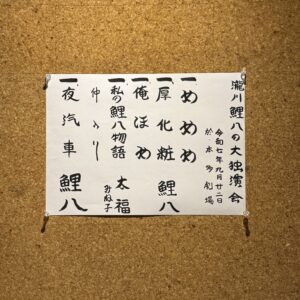 瀧川鯉八の大独演会
令和七年九月廿二日
於本多劇場
一めめめ
一厚化粧 鯉八
一俺ほめ
一私の鯉八物語 太福
みね子
仲入り
一夜汽車 鯉八